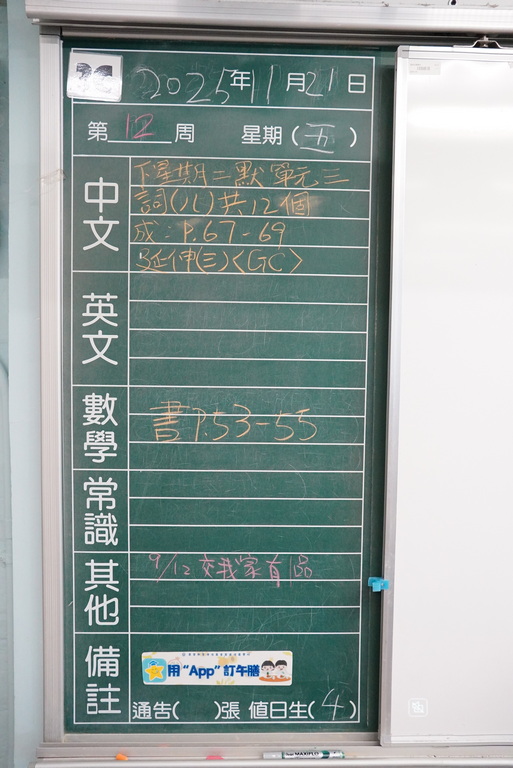 2025年11月21日
第12周 星期(五)
中文
下星期二默單元三
詞(八)共12個
成：P.67-69
延伸(三)<GC>
英文
數學
書P.53-55
常識
其他
9/12 交我家有品
備註
用"App"訂午膳
通告( )張 值日生(4)